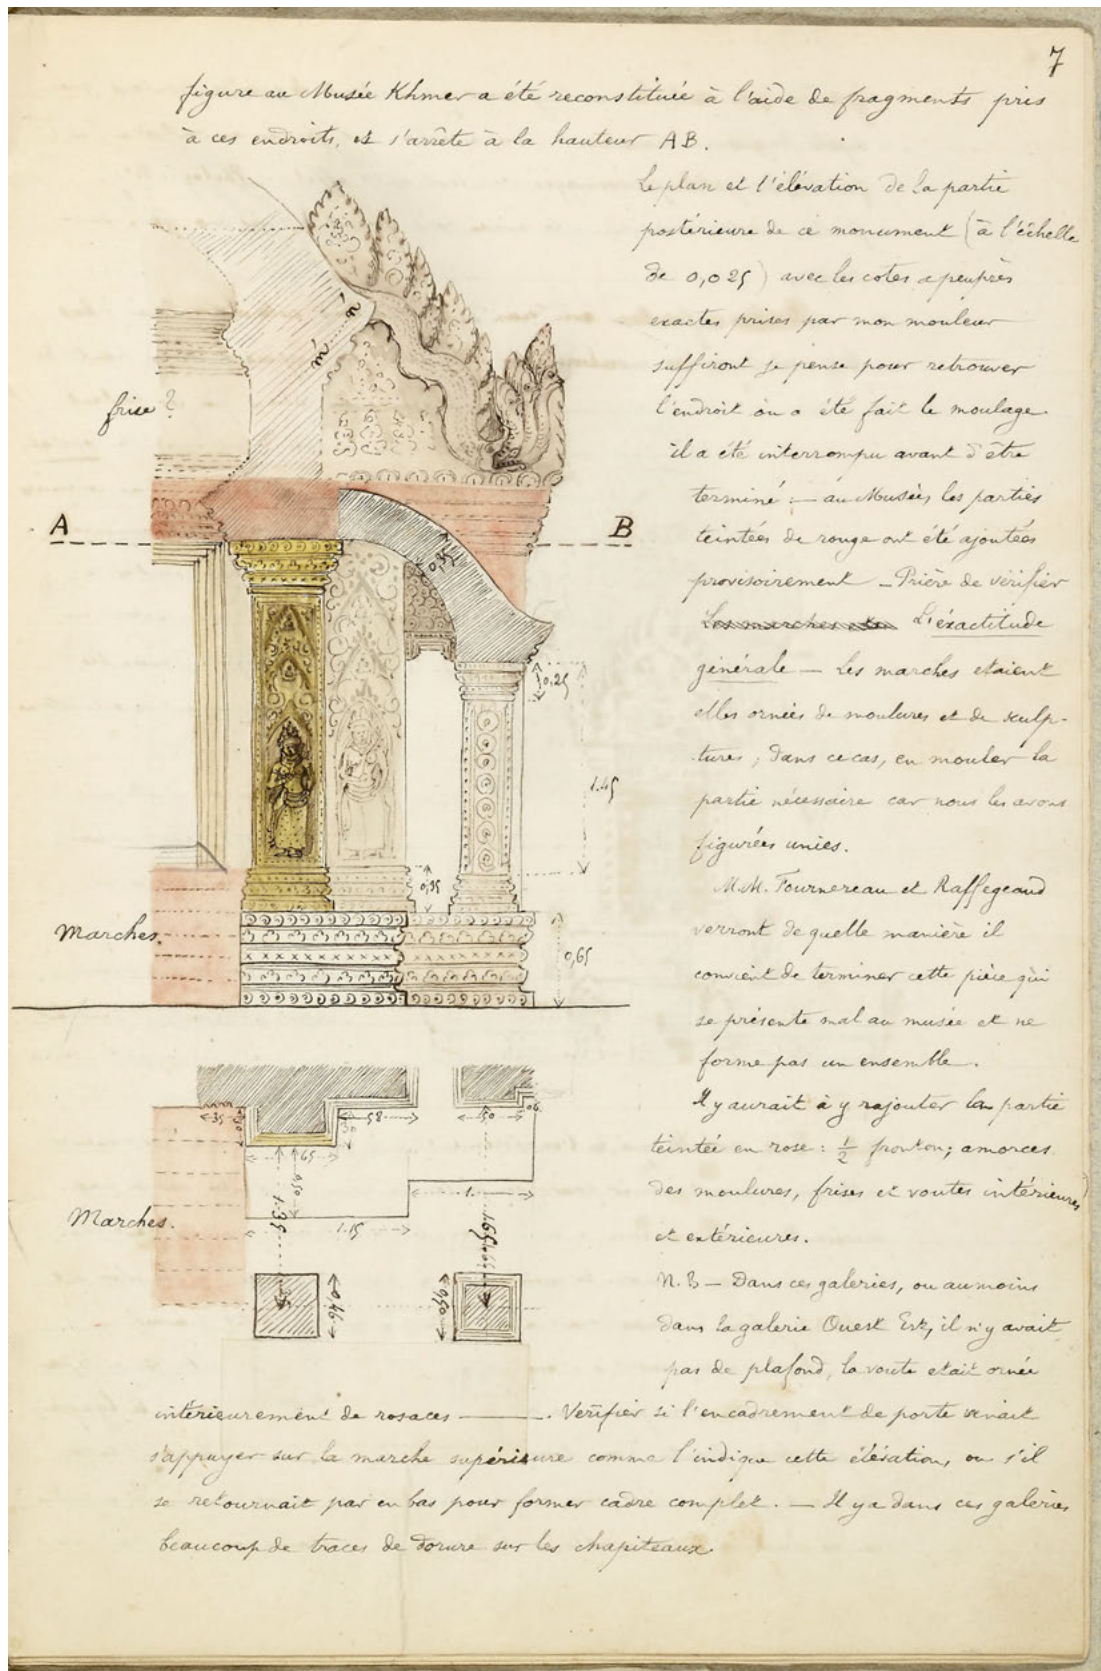 7
figure au Musée Khmer a été reconstituée à l'aide de fragments pris
à ces endroits, et s'arrête à la hauteur AB.
Le plan et l'élévation de la partie
postérieure de ce monument (à l'échelle
de 0,025) avec les cotes apeuprès
exactes prises par mon mouleur
suffiront je pense pour retrouver
l'endroit où a été fait le moulage.
il a été interrompu avant d'être
terminé; – au Musée, les parties
teintées de rouge ont été ajoutées
provisoirement – Prière de vérifier
Les marches L'éxactitude
générale – Les marches etaient
elles ornées de moulures et de sculp-
tures; dans ce cas, en mouler la
partie nécessaire car nous les avons
figurées unies.
M.M. Fournereau et Raffegeaud
verront de quelle manière il
convient de terminer cette pièce qui
se présente mal au musée et ne
forme pas un ensemble.
Il y aurait à y rajouter la partie
teintée en rose: 1/2 fronton; amorces
des moulures, frises et voutes intérieures
et extérieures.
N.B – Dans ces galeries, ou au moins
dans la galerie Ouest Est, il n'y avait
pas de plafond, la voute etait ornée
intérieurement de rosaces ———. Vérifier si l'encadrement de porte venait
s'appuyer sur la marche supérieure comme l'indique cette élévation, ou s'il
se retournait par en bas pour former cadre complet. – Il y a dans ces galeries
beaucoup de traces de dorure sur les chapiteaux.
m' n'
frise?
A B
0,35
0,25
1.45
0,35
Marches.
0,65
35 58 50 06
30
65
0,50
1.35
1.
1.15
1.65
Marches.
0,46
0,50